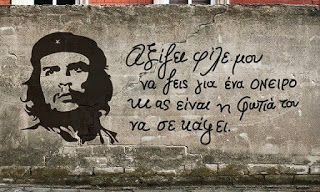 Αξίζει φίλε μου
να ζεις για ένα ΟΝΕΙΡΟ
κι ας είναι η φωτιά του
να σε κάψει.